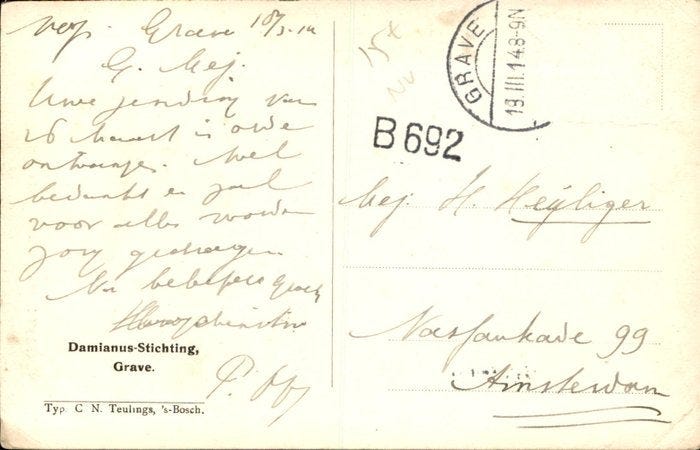 Grave 18/3.14
G. Mej.
Uwe zending van
16 Maart in orde
ontvangen. Wel
bedankt en zal
voor alles worden
zorg gedragen
Na beleefde groet
Hoogachtend
P.
Damianus-Stichting,
Grave.
Typ. C. N. Teulings, 's-Bosch.
15
GRAVE
18.III.14 8-9N
B 692
Mej. H. Heyliger
Nassaukade 99
Amsterdam